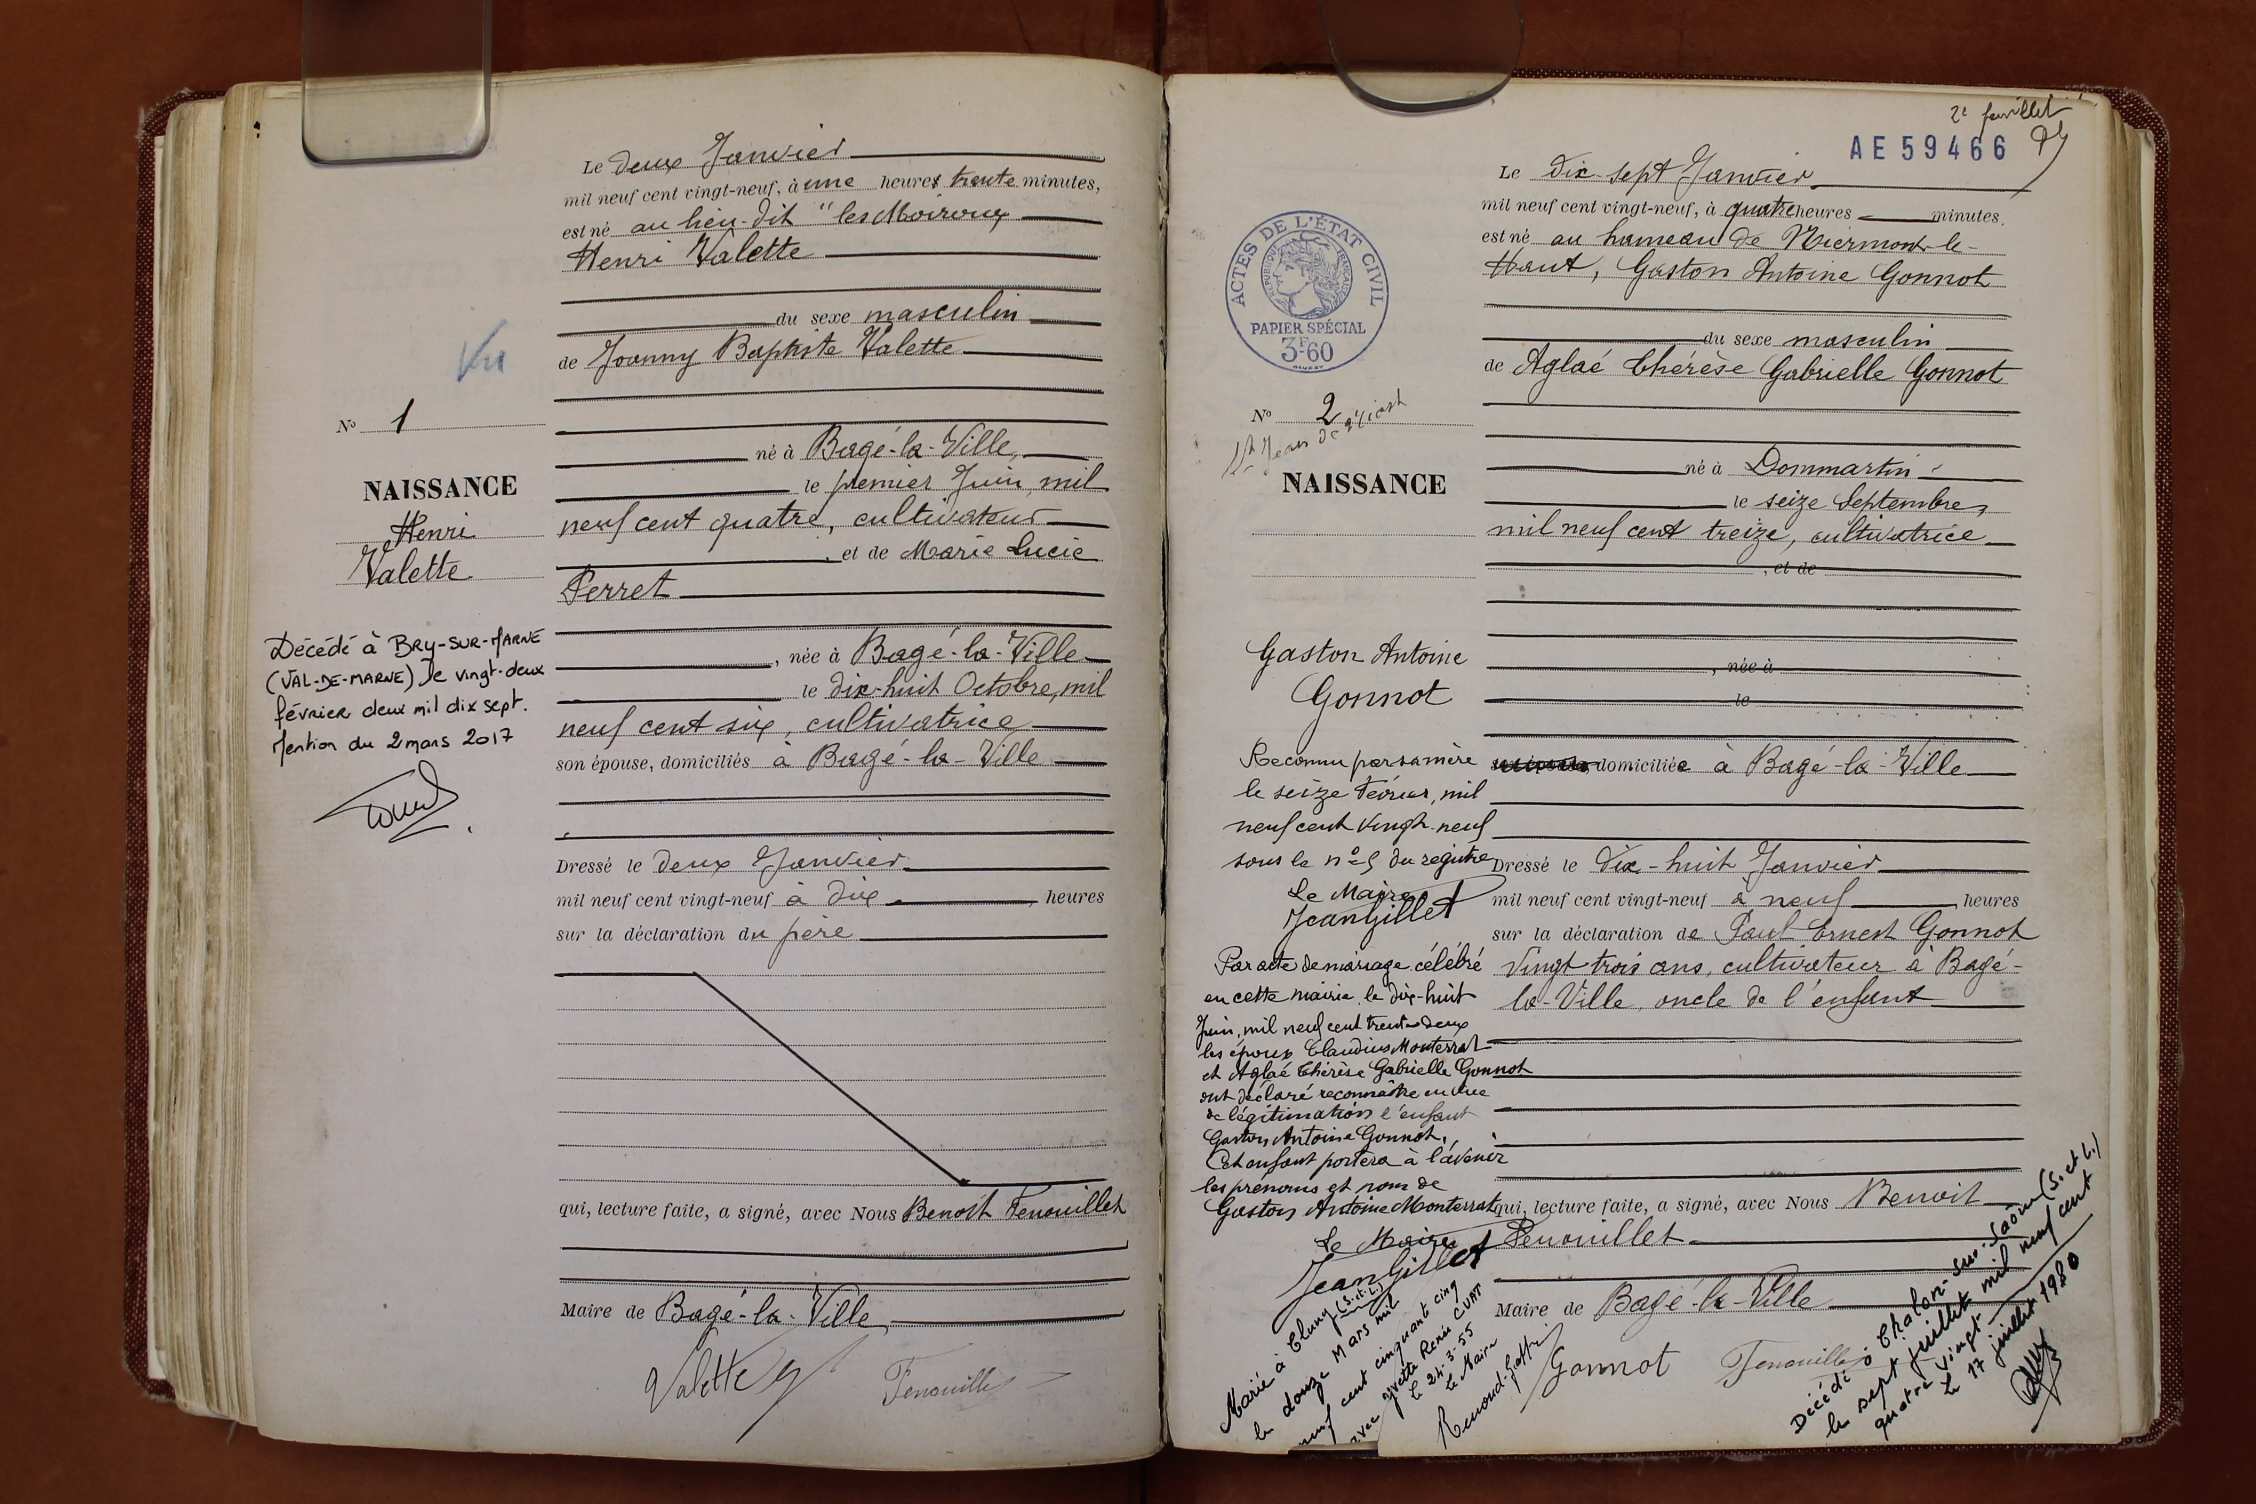 Le deux Janvier
mil neuf cent vingt-neuf, à une heures trente minutes,
est né au lieu-dit "les Moiroux
Henri Valette
du sexe masculin
de Joanny Baptiste Valette
Vu
No 1
né à Bagé-la-Ville,
le premier Juin, mil
NAISSANCE
Henri
Valette
neuf cent quatre, cultivateur
, et de Marie Lucie
Perret
, née à Bagé-la-Ville
le dix-huit Octobre, mil
neuf cent six, cultivatrice
son épouse, domiciliés à Bagé-la-Ville
Décédé à BRY-SUR-MARNE
(VAL-DE-MARNE) le vingt-deux
février deux mil dix sept.
Mention du 2 mars 2017
Dressé le deux Janvier
mil neuf cent vingt-neuf à dix heures
sur la déclaration du père
qui, lecture faite, a signé, avec Nous Benoît Fenouillet
Maire de Bagé-la-Ville,
Valette
Fenouillet
2e feuillet
AE 59466
Le dix-sept Janvier
mil neuf cent vingt-neuf, à quatre heures minutes
est né au hameau de Niermont-le-
Haut, Gaston Antoine Gonnot
du sexe masculin
de Aglaé Thérèse Gabrielle Gonnot
ACTES DE L'ÉTAT CIVIL
RÉPUBLIQUE FRANÇAISE
PAPIER SPÉCIAL
3F60
No 2
NAISSANCE
né à Dommartin
le seize Septembre,
mil neuf cent treize, cultivatrice
, et de
, née à
le
domiciliée à Bagé-la-Ville
Gaston Antoine
Gonnot
Reconnu par sa mère
le seize Février, mil
neuf cent vingt-neuf
sous le no 5 du registre
Le Maire
Jean Gillet
Par acte de mariage célébré
en cette mairie, le dix-huit
Juin, mil neuf cent trente-deux
les époux Claudius Monterrat
et Aglaé Thérèse Gabrielle Gonnot
ont déclaré reconnaître en vue
de légitimation l'enfant
Gaston Antoine Gonnot.
Cet enfant portera à l'avenir
les prénoms et nom de
Gaston Antoine Monterrat
Le Maire
Jean Gillet
Marié à Cluny (S.et.L)
le douze Mars mil
neuf cent cinquant cinq
avec Yvette Renée CVAT
le 24-3-55
Le Maire
Dressé le dix-huit Janvier
mil neuf cent vingt-neuf à neuf heures
sur la déclaration de Paul Ernest Gonnot
vingt trois ans, cultivateur à Bagé-
la-Ville, oncle de l'enfant
qui, lecture faite, a signé, avec Nous Benoît
Fenouillet
Maire de Bagé-la-Ville
Gonnot
Fenouillet
Décédé à Chalon-sur-Saône (S.et L.)
le sept juillet mil neuf cent
quatre vingt
Le 17 juillet 1980